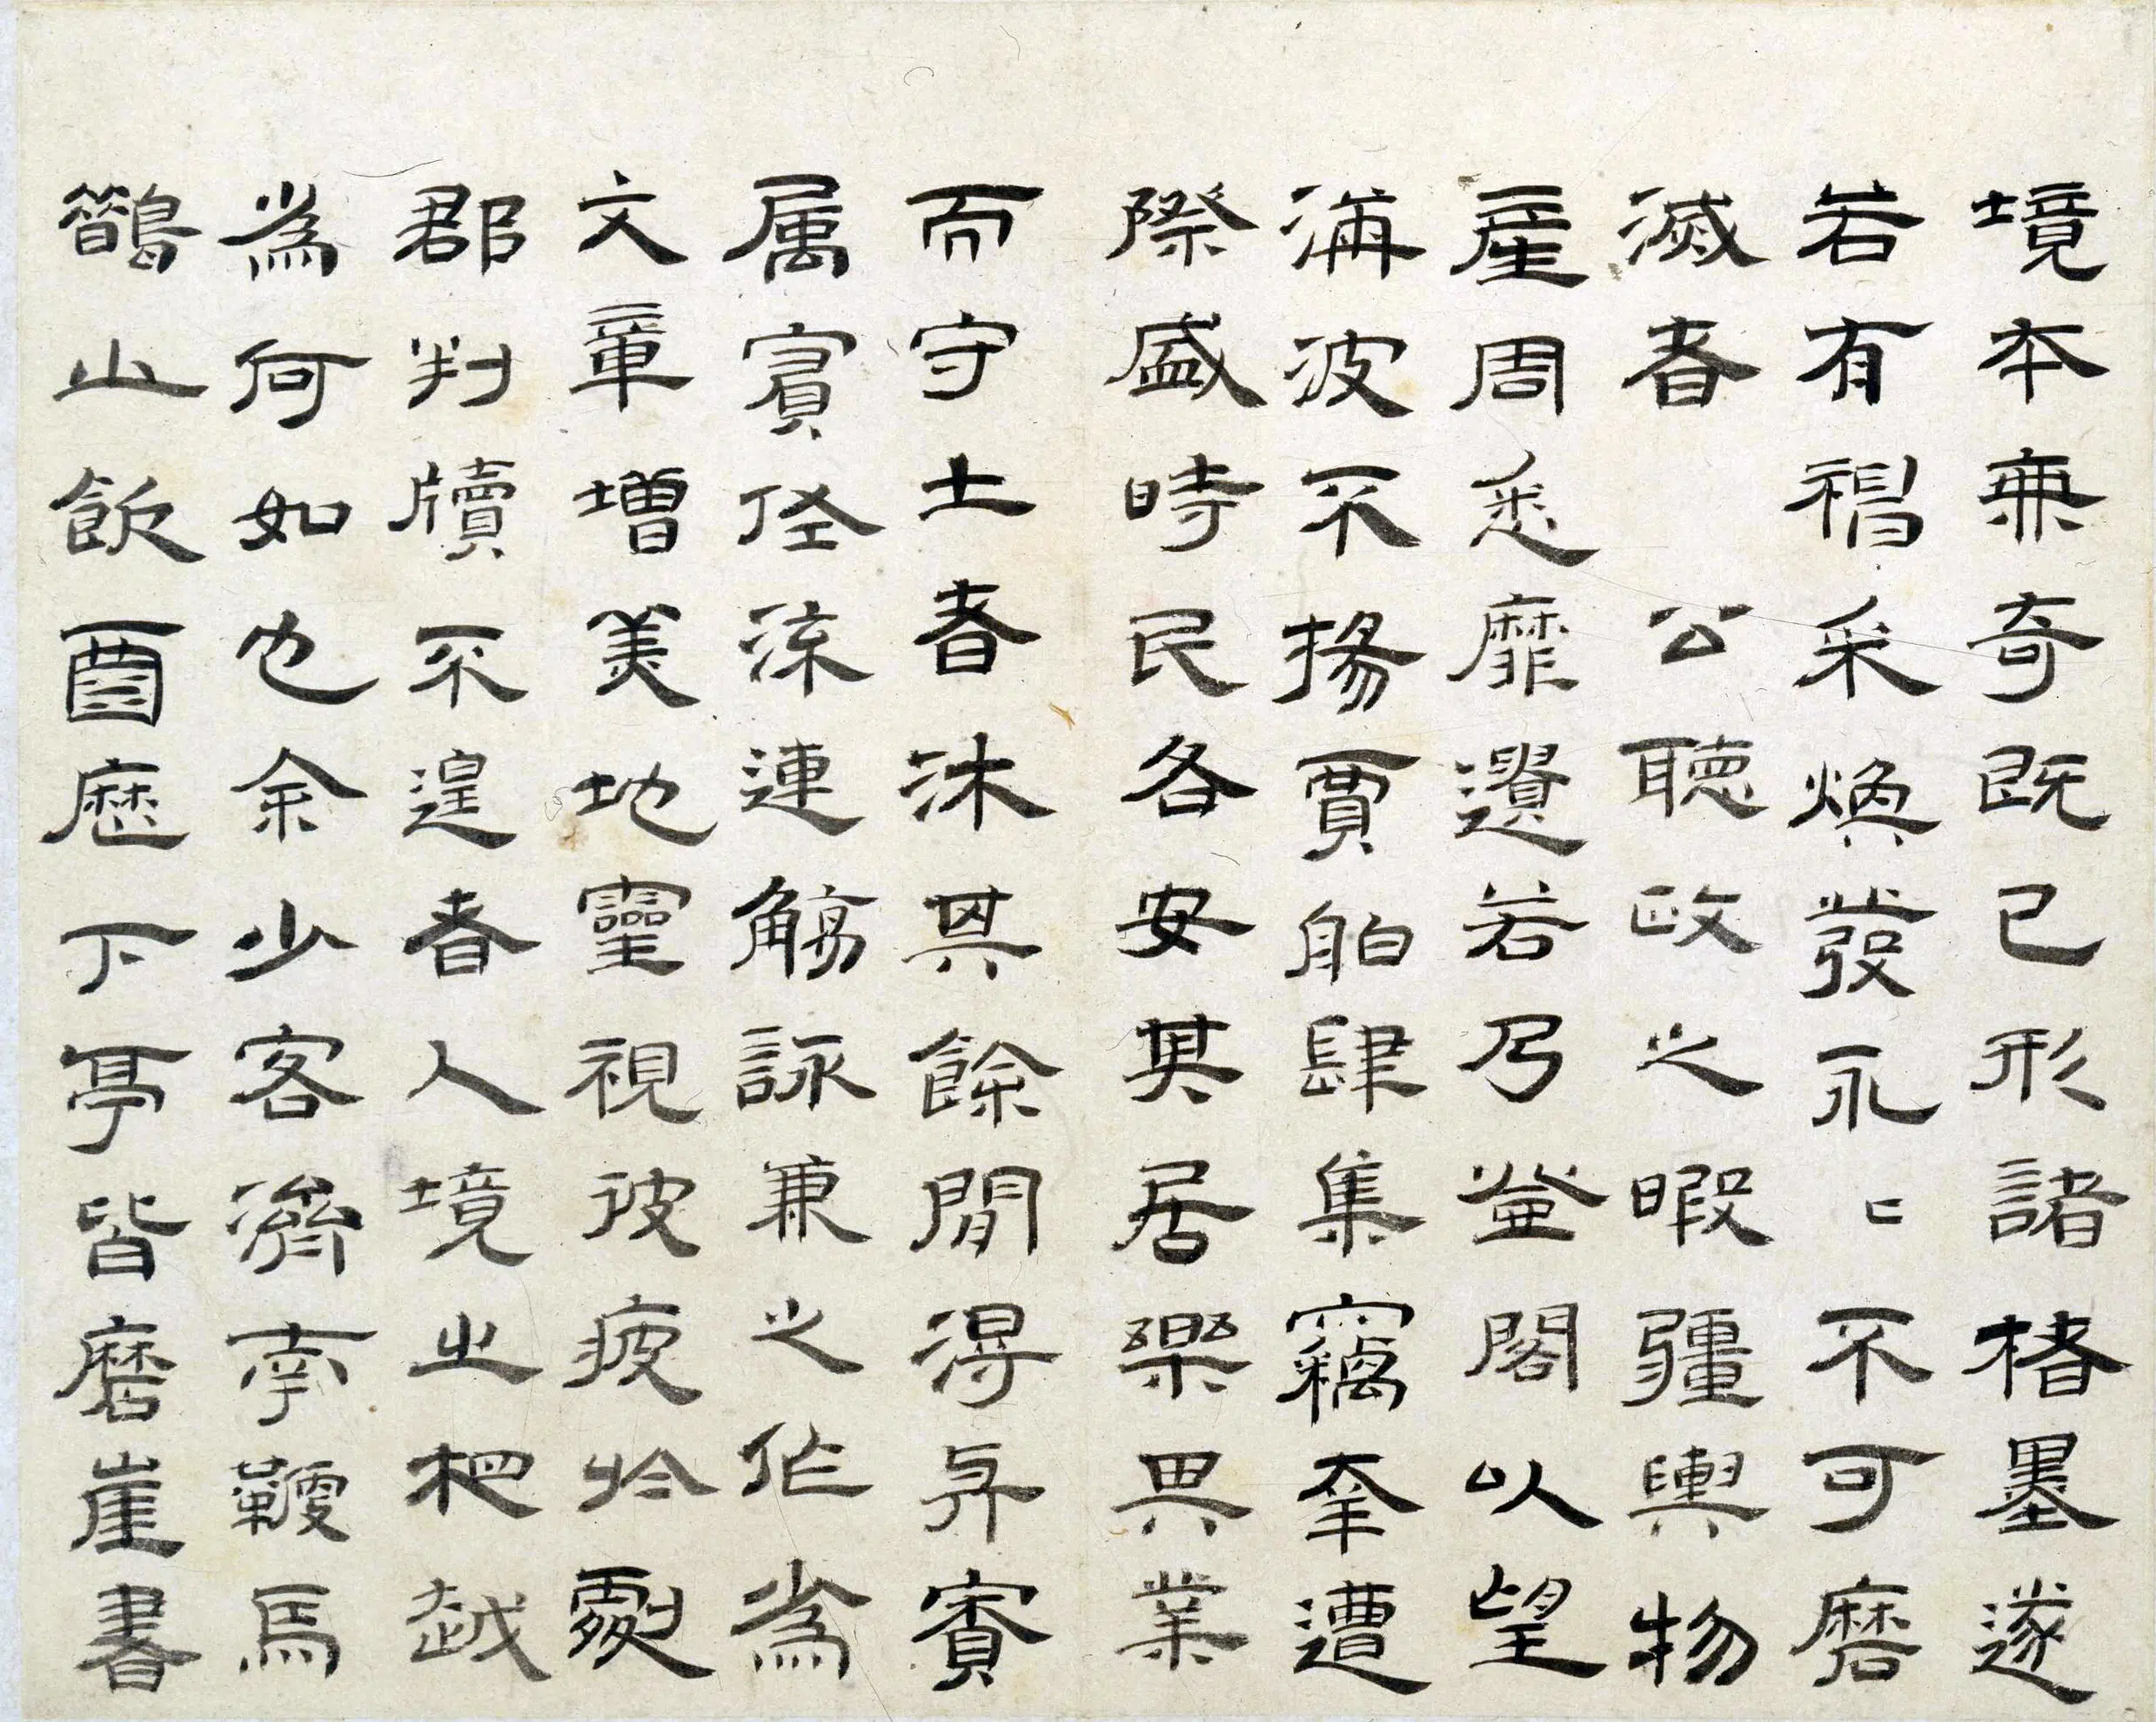 境本兼奇既已形諸楮墨遂
若有神采煥發永〻不可磨
滅者 公聽政之暇疆輿物
產周悉靡遺若乃登閣以望
海波不揚賈舶肆集竊幸遭
際盛時民各安其居樂其業
而守土者沐其餘閒得與賓
属寅佐流連觴詠兼之作為
文章增美地靈視彼疲於劇
郡判牘不遑者人境之相越
為何如也余少客濟南鞭馬
鵲山飲酒歷下亭皆磨崖書